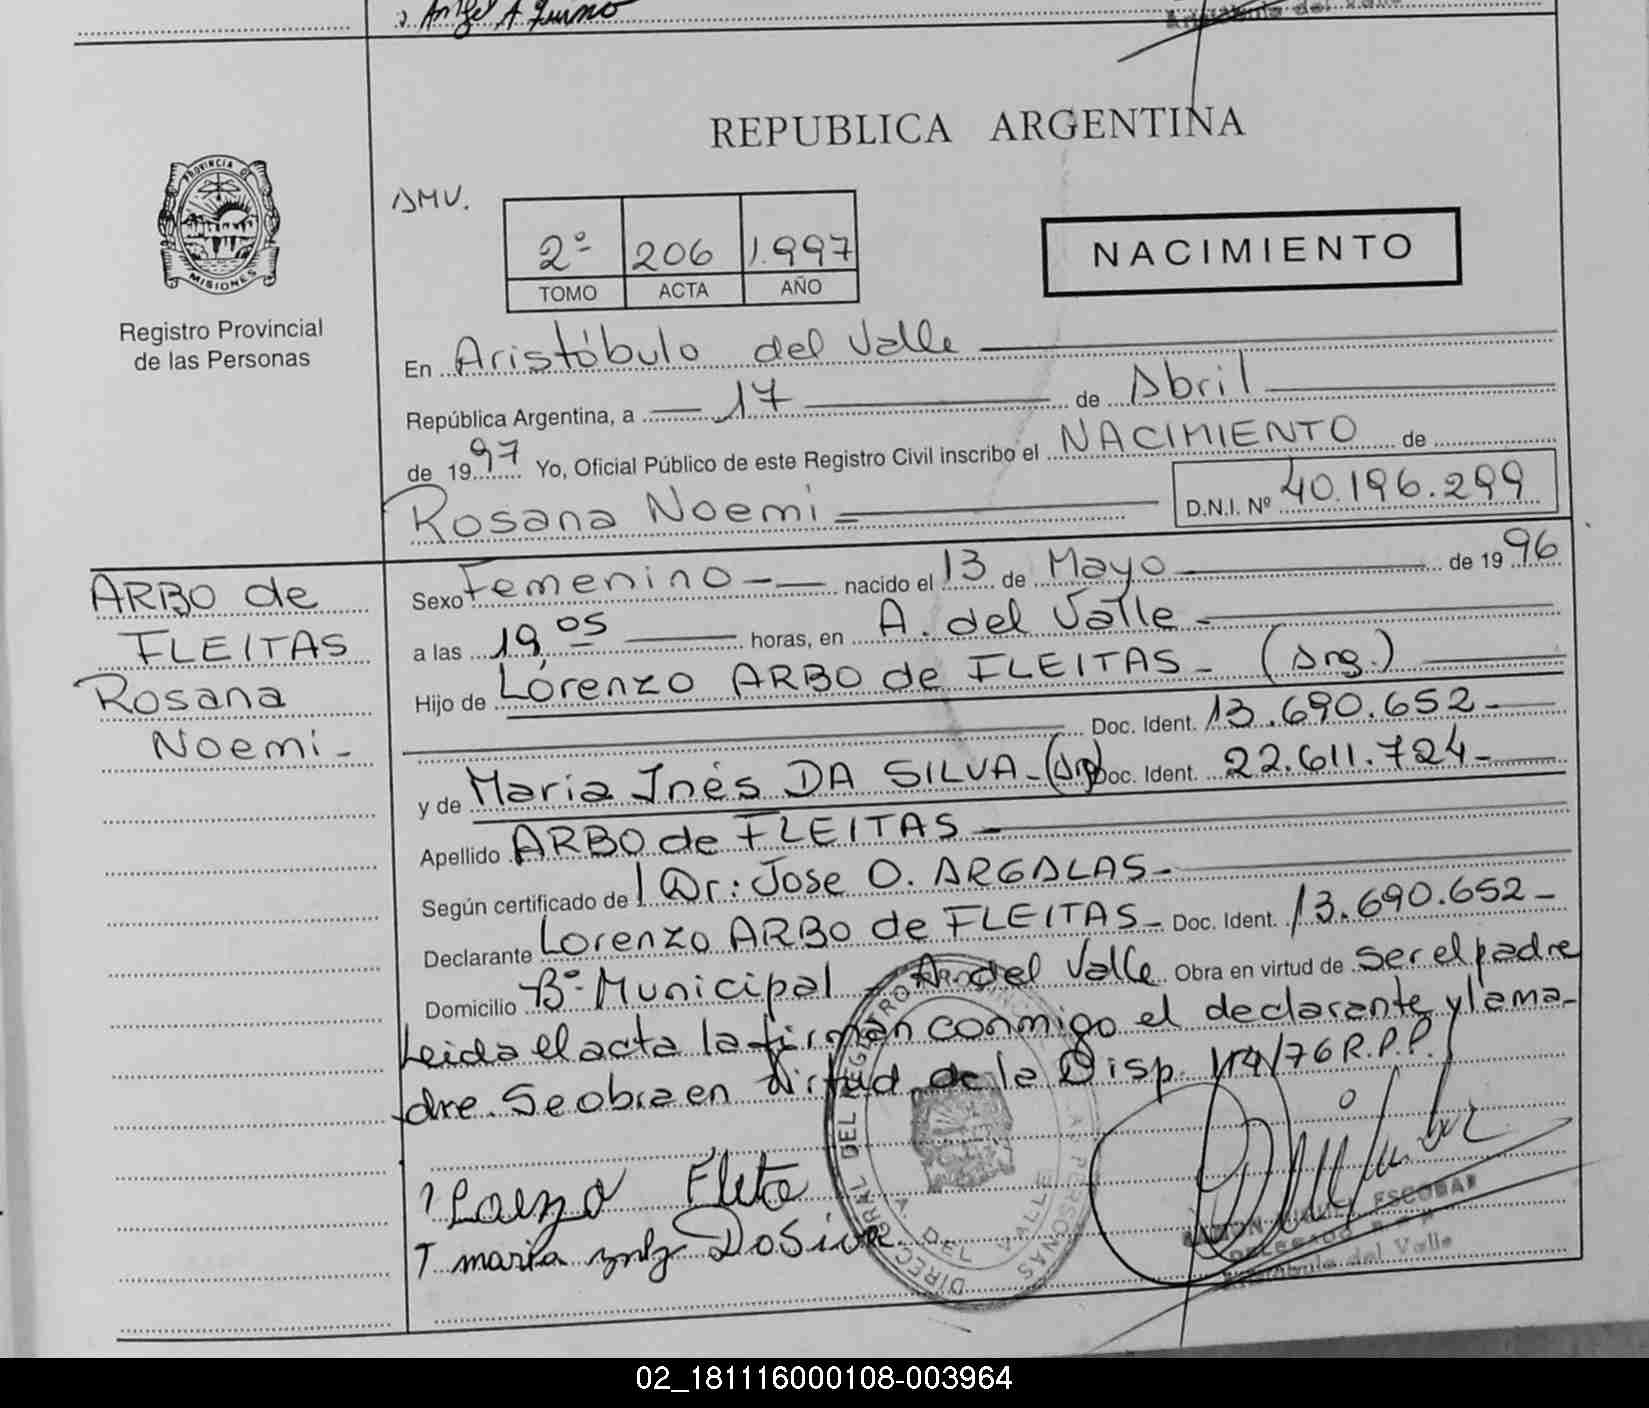 Angel A
Aristóbulo del Valle
REPUBLICA ARGENTINA
PROVINCIA DE
MISIONES
Registro Provincial
de las Personas
AMV.
2º 206 1.997
TOMO ACTA AÑO
NACIMIENTO
En Aristóbulo del Valle
República Argentina, a 17 de Abril
de 1997 Yo, Oficial Público de este Registro Civil inscribo el NACIMIENTO de
Rosana Noemi = D.N.I. Nº 40.196.299
ARBO de
FLEITAS
Rosana
Noemi-
Sexo Femenino nacido el 13 de Mayo de 1996
a las 19,05 horas, en A. del Valle
Hijo de Lorenzo ARBO de FLEITAS- (Arg.)
Doc. Ident. 13.690.652-
y de Maria Inés DA SILVA-(Arg) Doc. Ident. 22.611.724-
Apellido ARBO de FLEITAS-
Según certificado de Dr: Jose O. ARGALAS-
Declarante Lorenzo ARBO de FLEITAS- Doc. Ident. 13.690.652-
Domicilio Bº Municipal - A. del Valle Obra en virtud de ser el padre
Leida el acta la firman conmigo el declarante y la ma-
dre. Se obra en virtud de la Disp. 114/76 R.P.P.
DIRECC GRAL DEL REGISTRO PROVINCIAL DE LAS PERSONAS
A. DEL VALLE
Fleita
maria DaSiva
RAMON MIGUEL ESCOBAR
DELEGADO
Aristóbulo del Valle
02_181116000108-003964